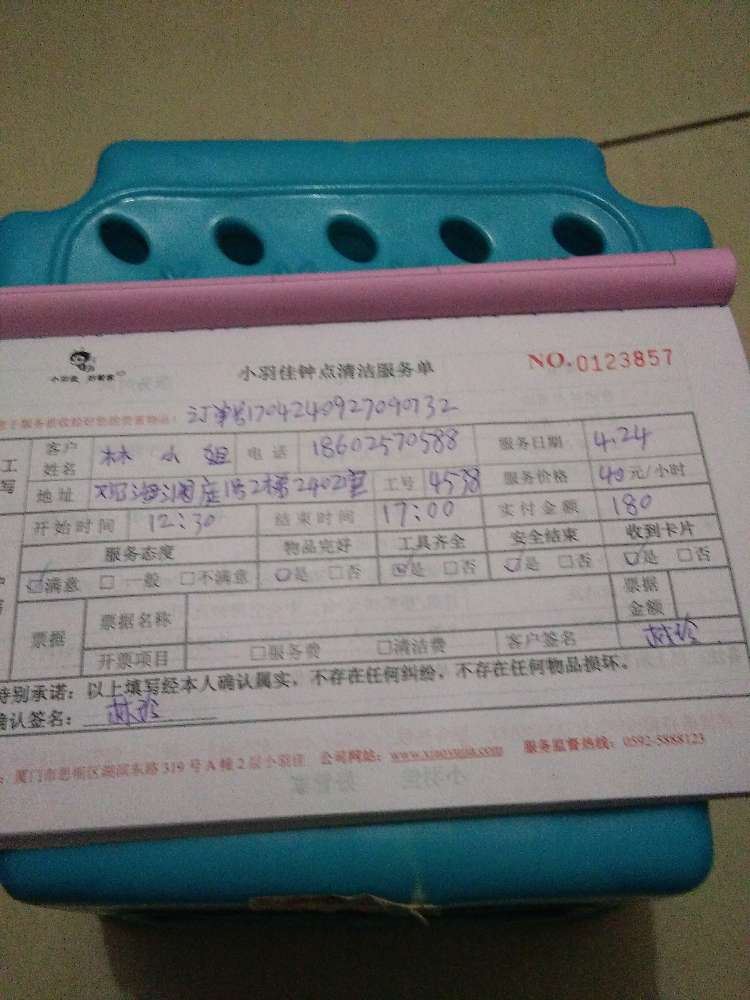 小羽佳钟点清洁服务单 NO.0123857
订单号1704240927090732
客户姓名 林小姐 电话 18602570588 服务日期 4.24
地址 2梯2402室 工号 4538 服务价格 40元/小时
开始时间 12:30 结束时间 17:00 实付金额 180
服务态度 物品完好 工具齐全 安全结束 收到卡片
☑满意 □一般 □不满意 ☑是 □否 ☑是 □否 ☑是 □否 ☑是 □否
票据 票据名称 票据金额
开票项目 □服务费 □清洁费 客户签名
特别承诺：以上填写经本人确认属实，不存在任何纠纷，不存在任何物品损坏。
确认签名：
厦门市思明区湖滨东路319号A幢2层小羽佳 公司网站：www.xiaoyujia.com 服务监督热线：0592-5888123